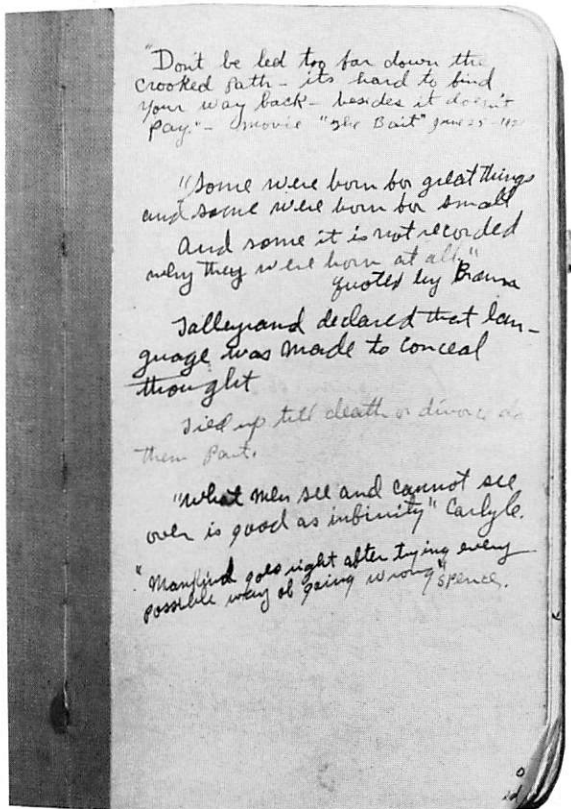 "Don't be led too far down the
crooked path - its hard to find
your way back - besides it doesn't
pay." - movie "The Bait" June 25 - '21
"Some were born for great things
and some were born for small
And some it is not recorded
why they were born at all,"
quoted by
Talleyrand declared that lan-
guage was made to conceal
thought
Tied up till death or divorce do
them part.
"What men see and cannot see
over is good as infinity" Carlyle.
"Mankind goes right after trying every
possible way of going wrong" Spencer.